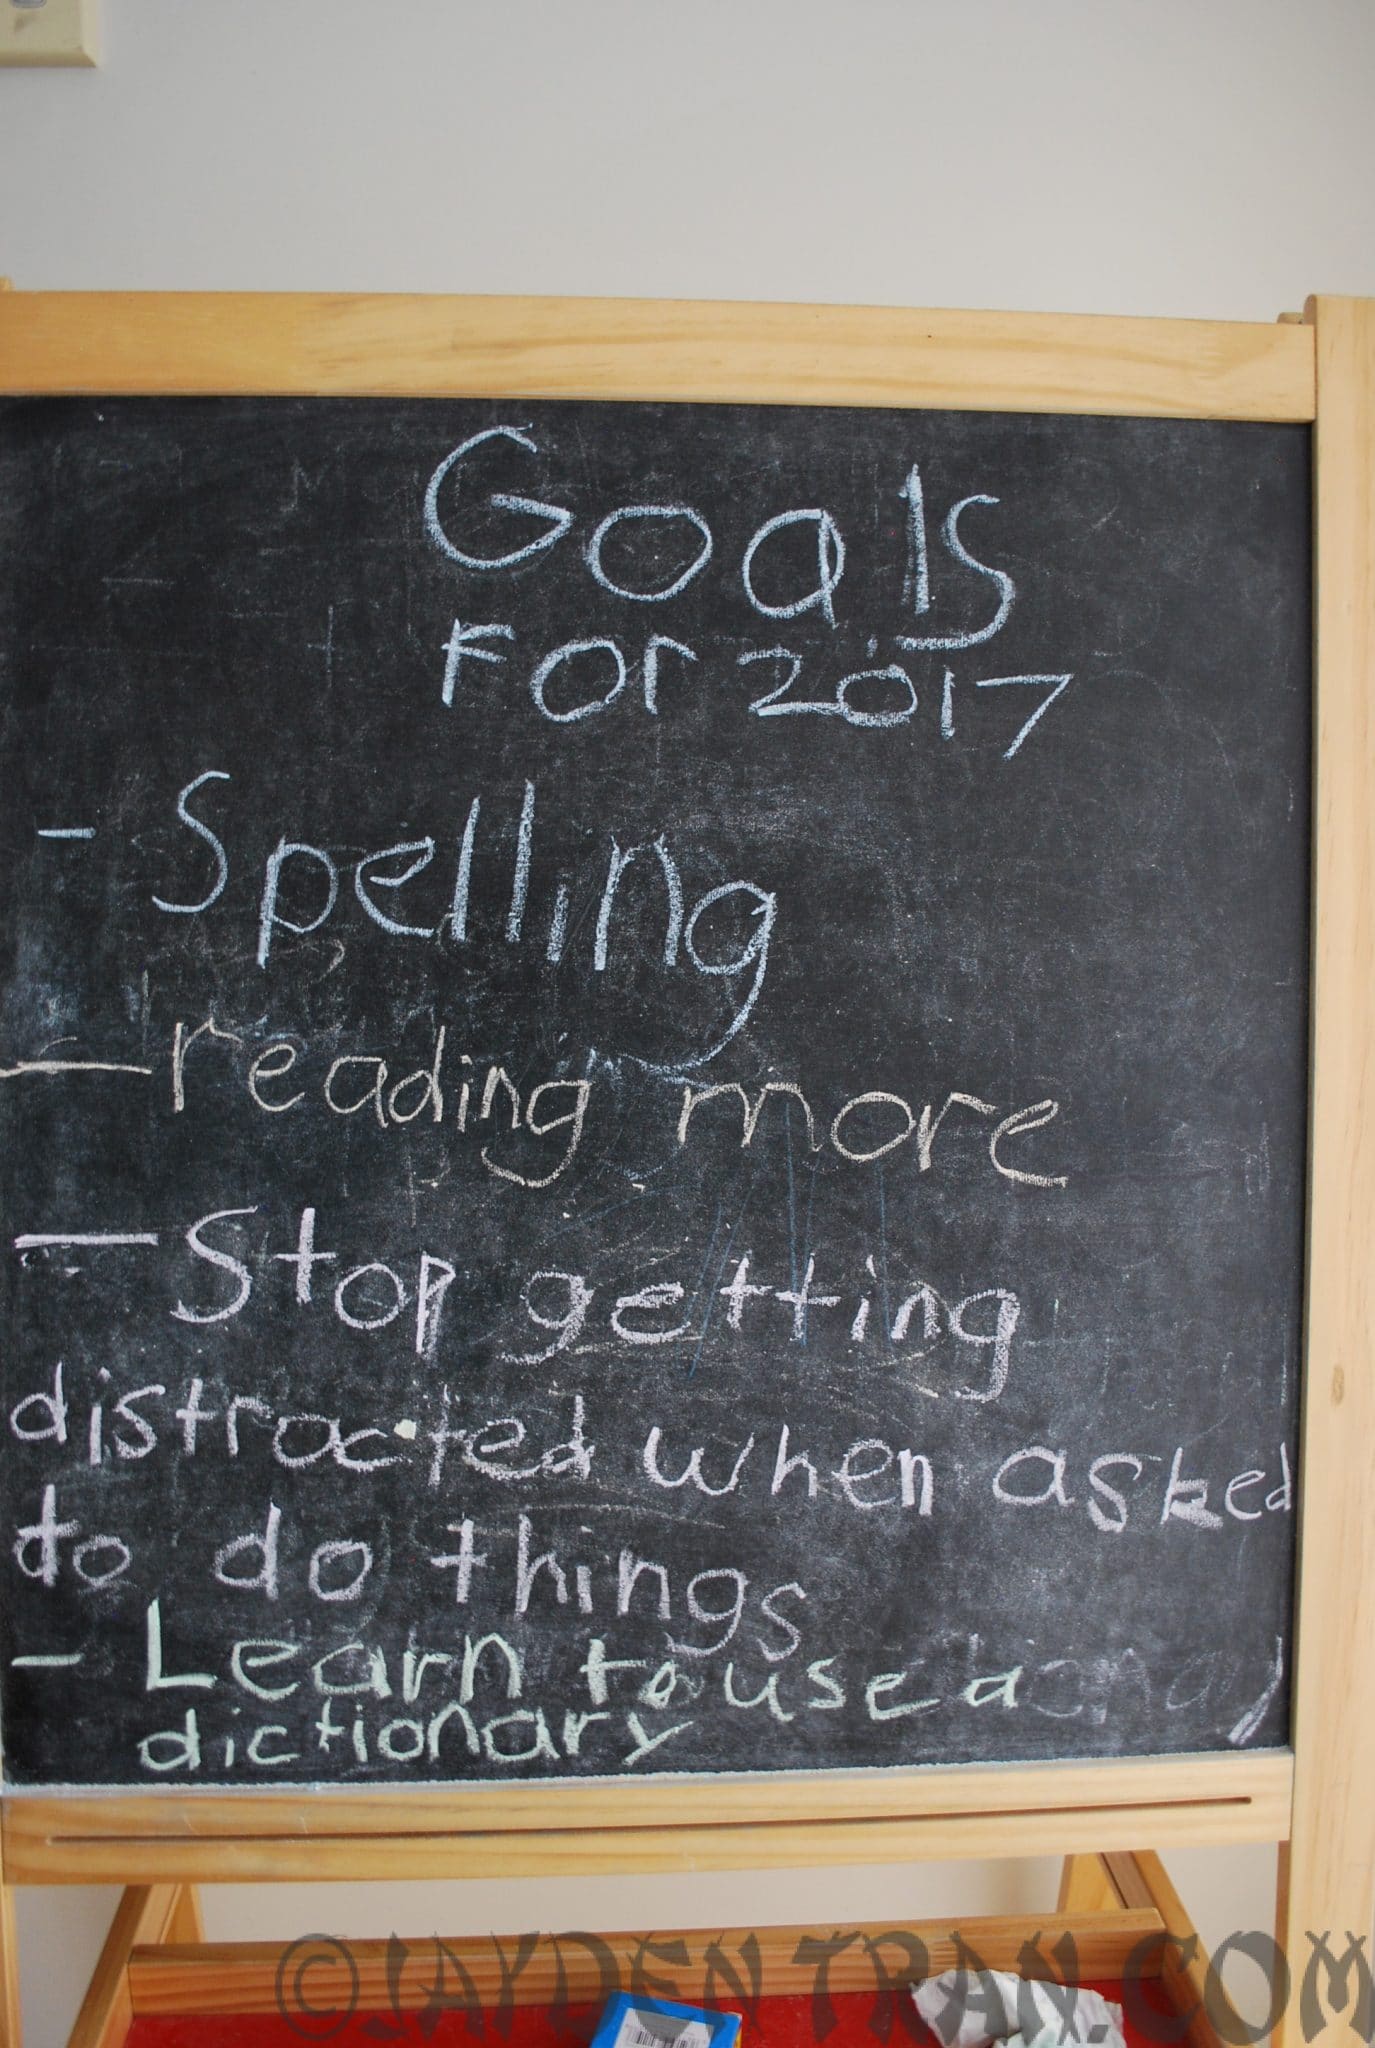 Goals
For 2017
- Spelling
- reading more
- Stop getting
distracted when asked
to do things
- Learn to use a
dictionary
© JAYDENTRAN.COM